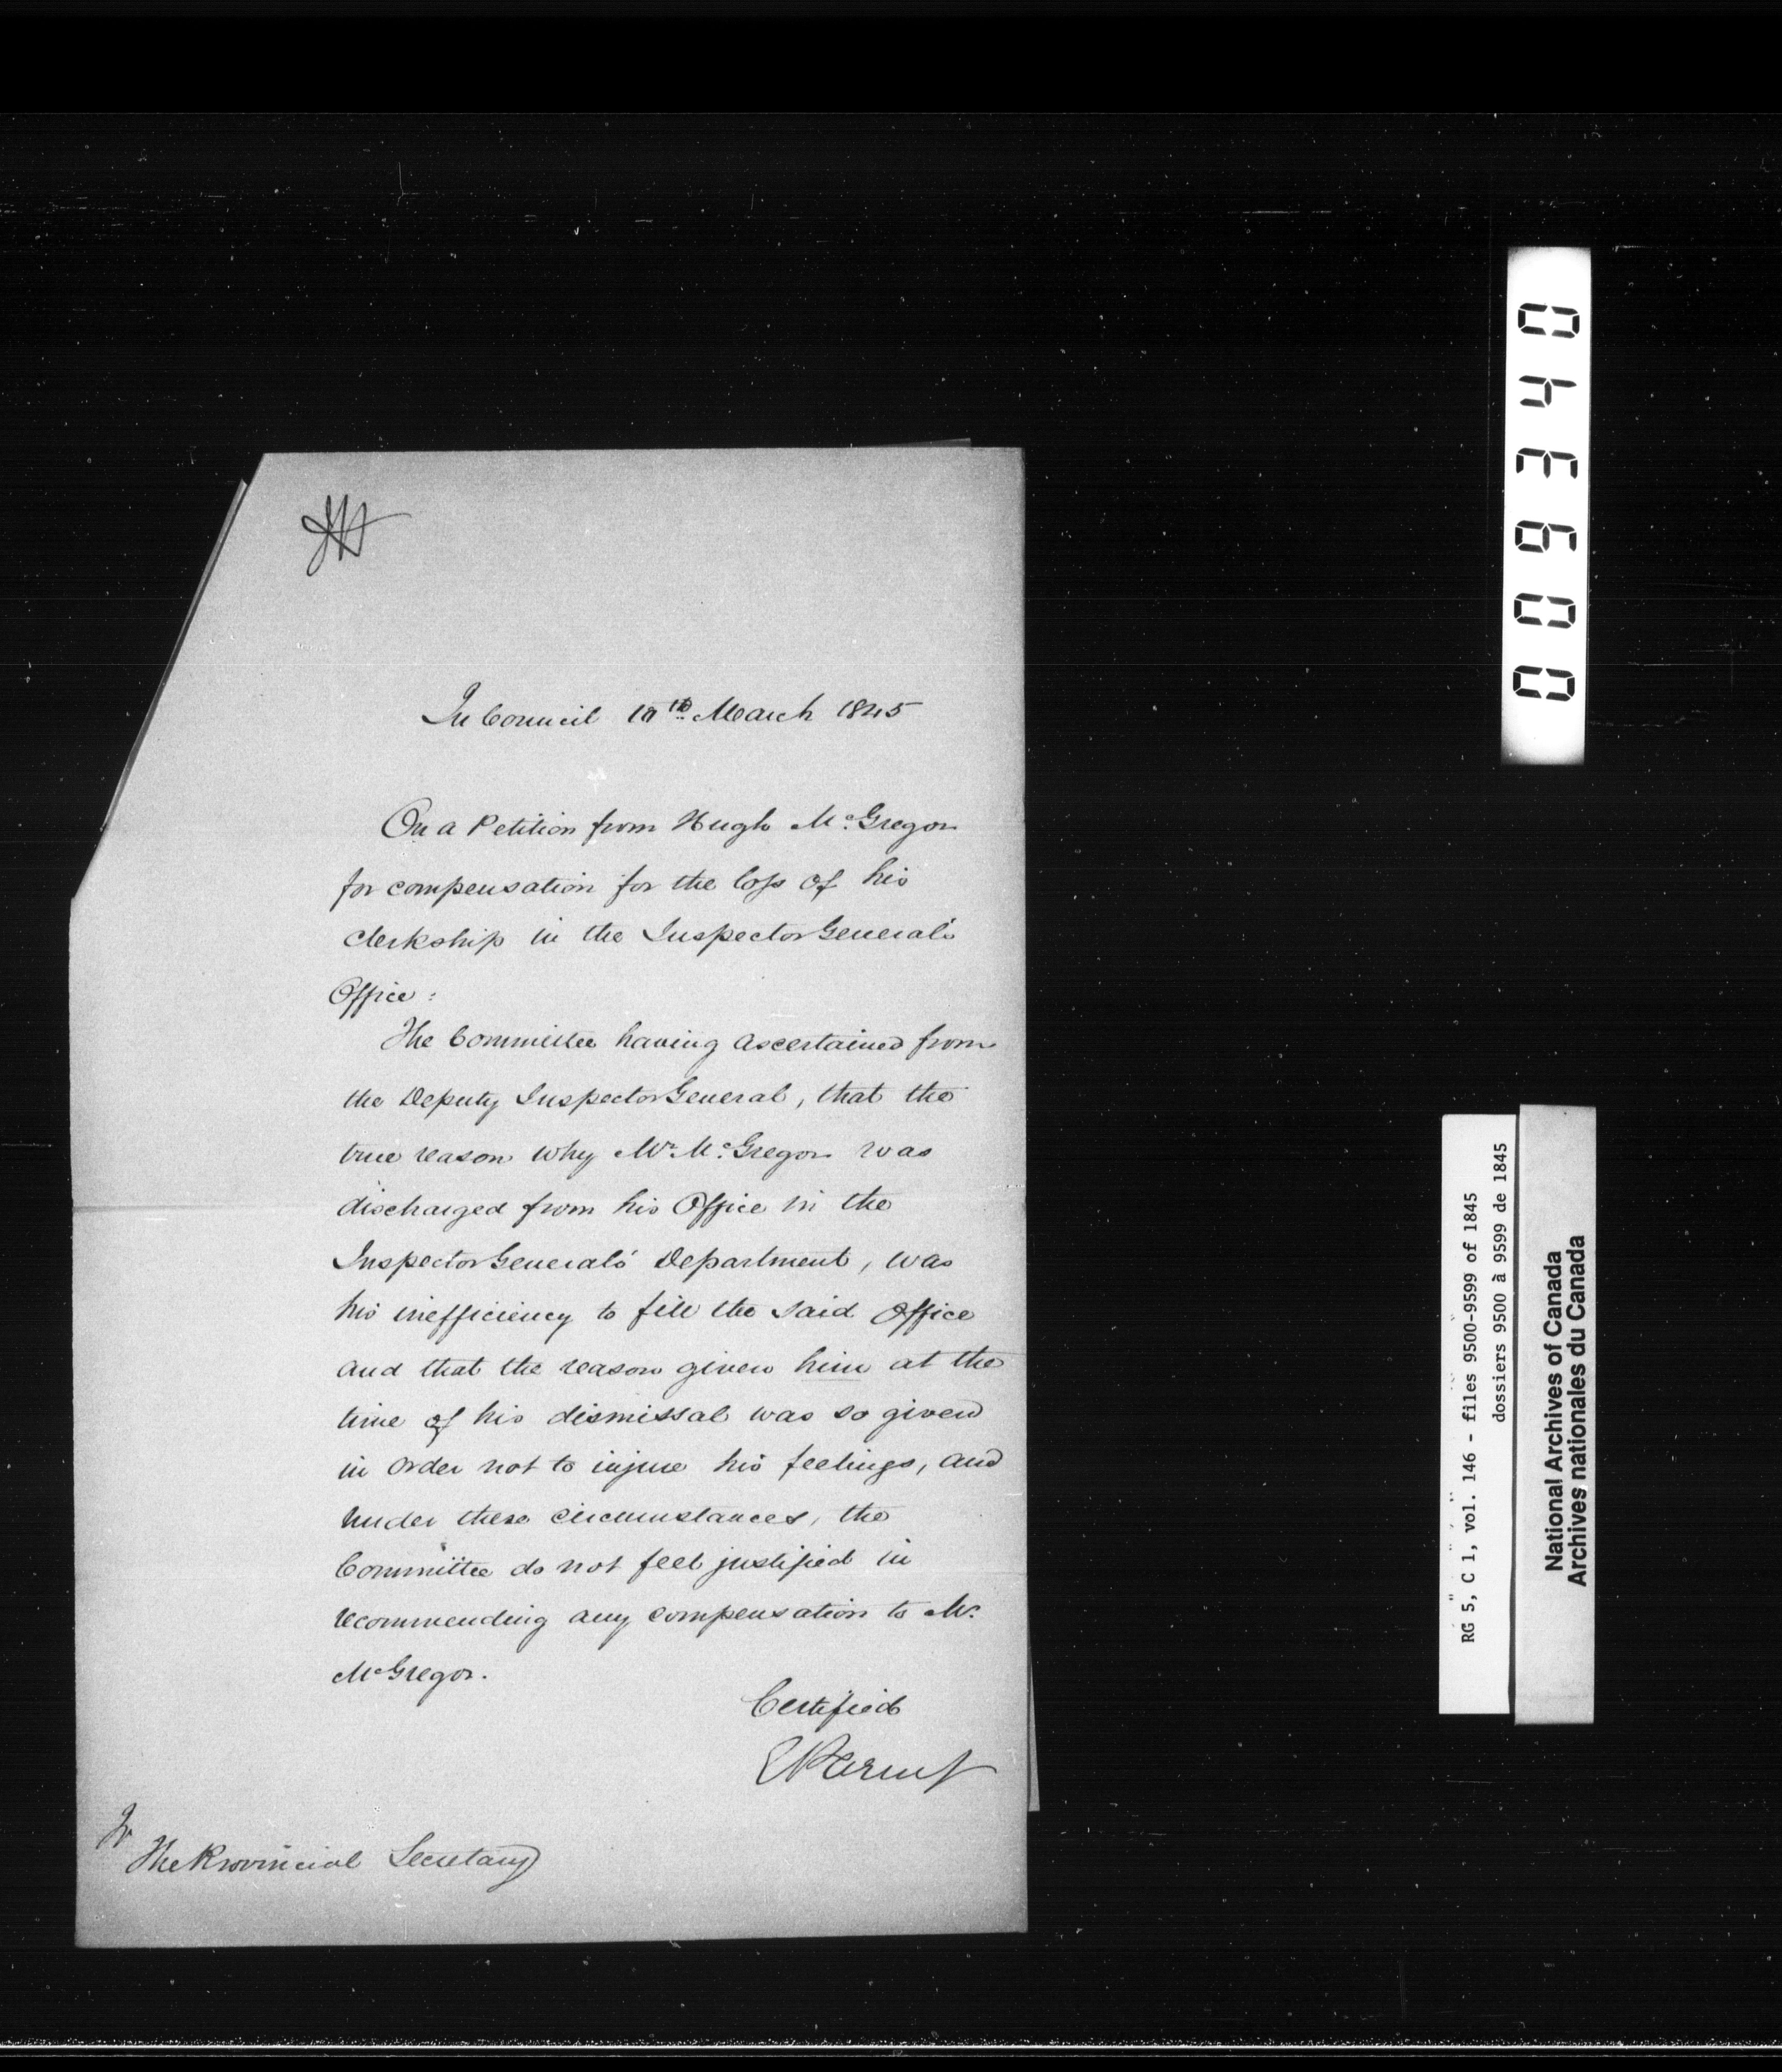 In Council 10th March 1845
On a Petition from Hugh McGregor
for compensation for the loss of his
Clerkship in the Inspector General's
Office:
The Committee having ascertained from
the Deputy Inspector General, that the
true reason why Mr McGregor was
discharged from his Office in the
Inspector General's Department, was
his inefficiency to fill the said Office
and that the reason given him at the
time of his dismissal was so given
in order not to injure his feelings, and
under these circumstances, the
Committee do not feel justified in
recommending any compensation to Mr.
McGregor.
Certified
E Parent
To
The Provincial Secretary
009340
RG 5, C 1, vol. 146 - files 9500-9599 of 1845
dossiers 9500 à 9599 de 1845
National Archives of Canada
Archives nationales du Canada